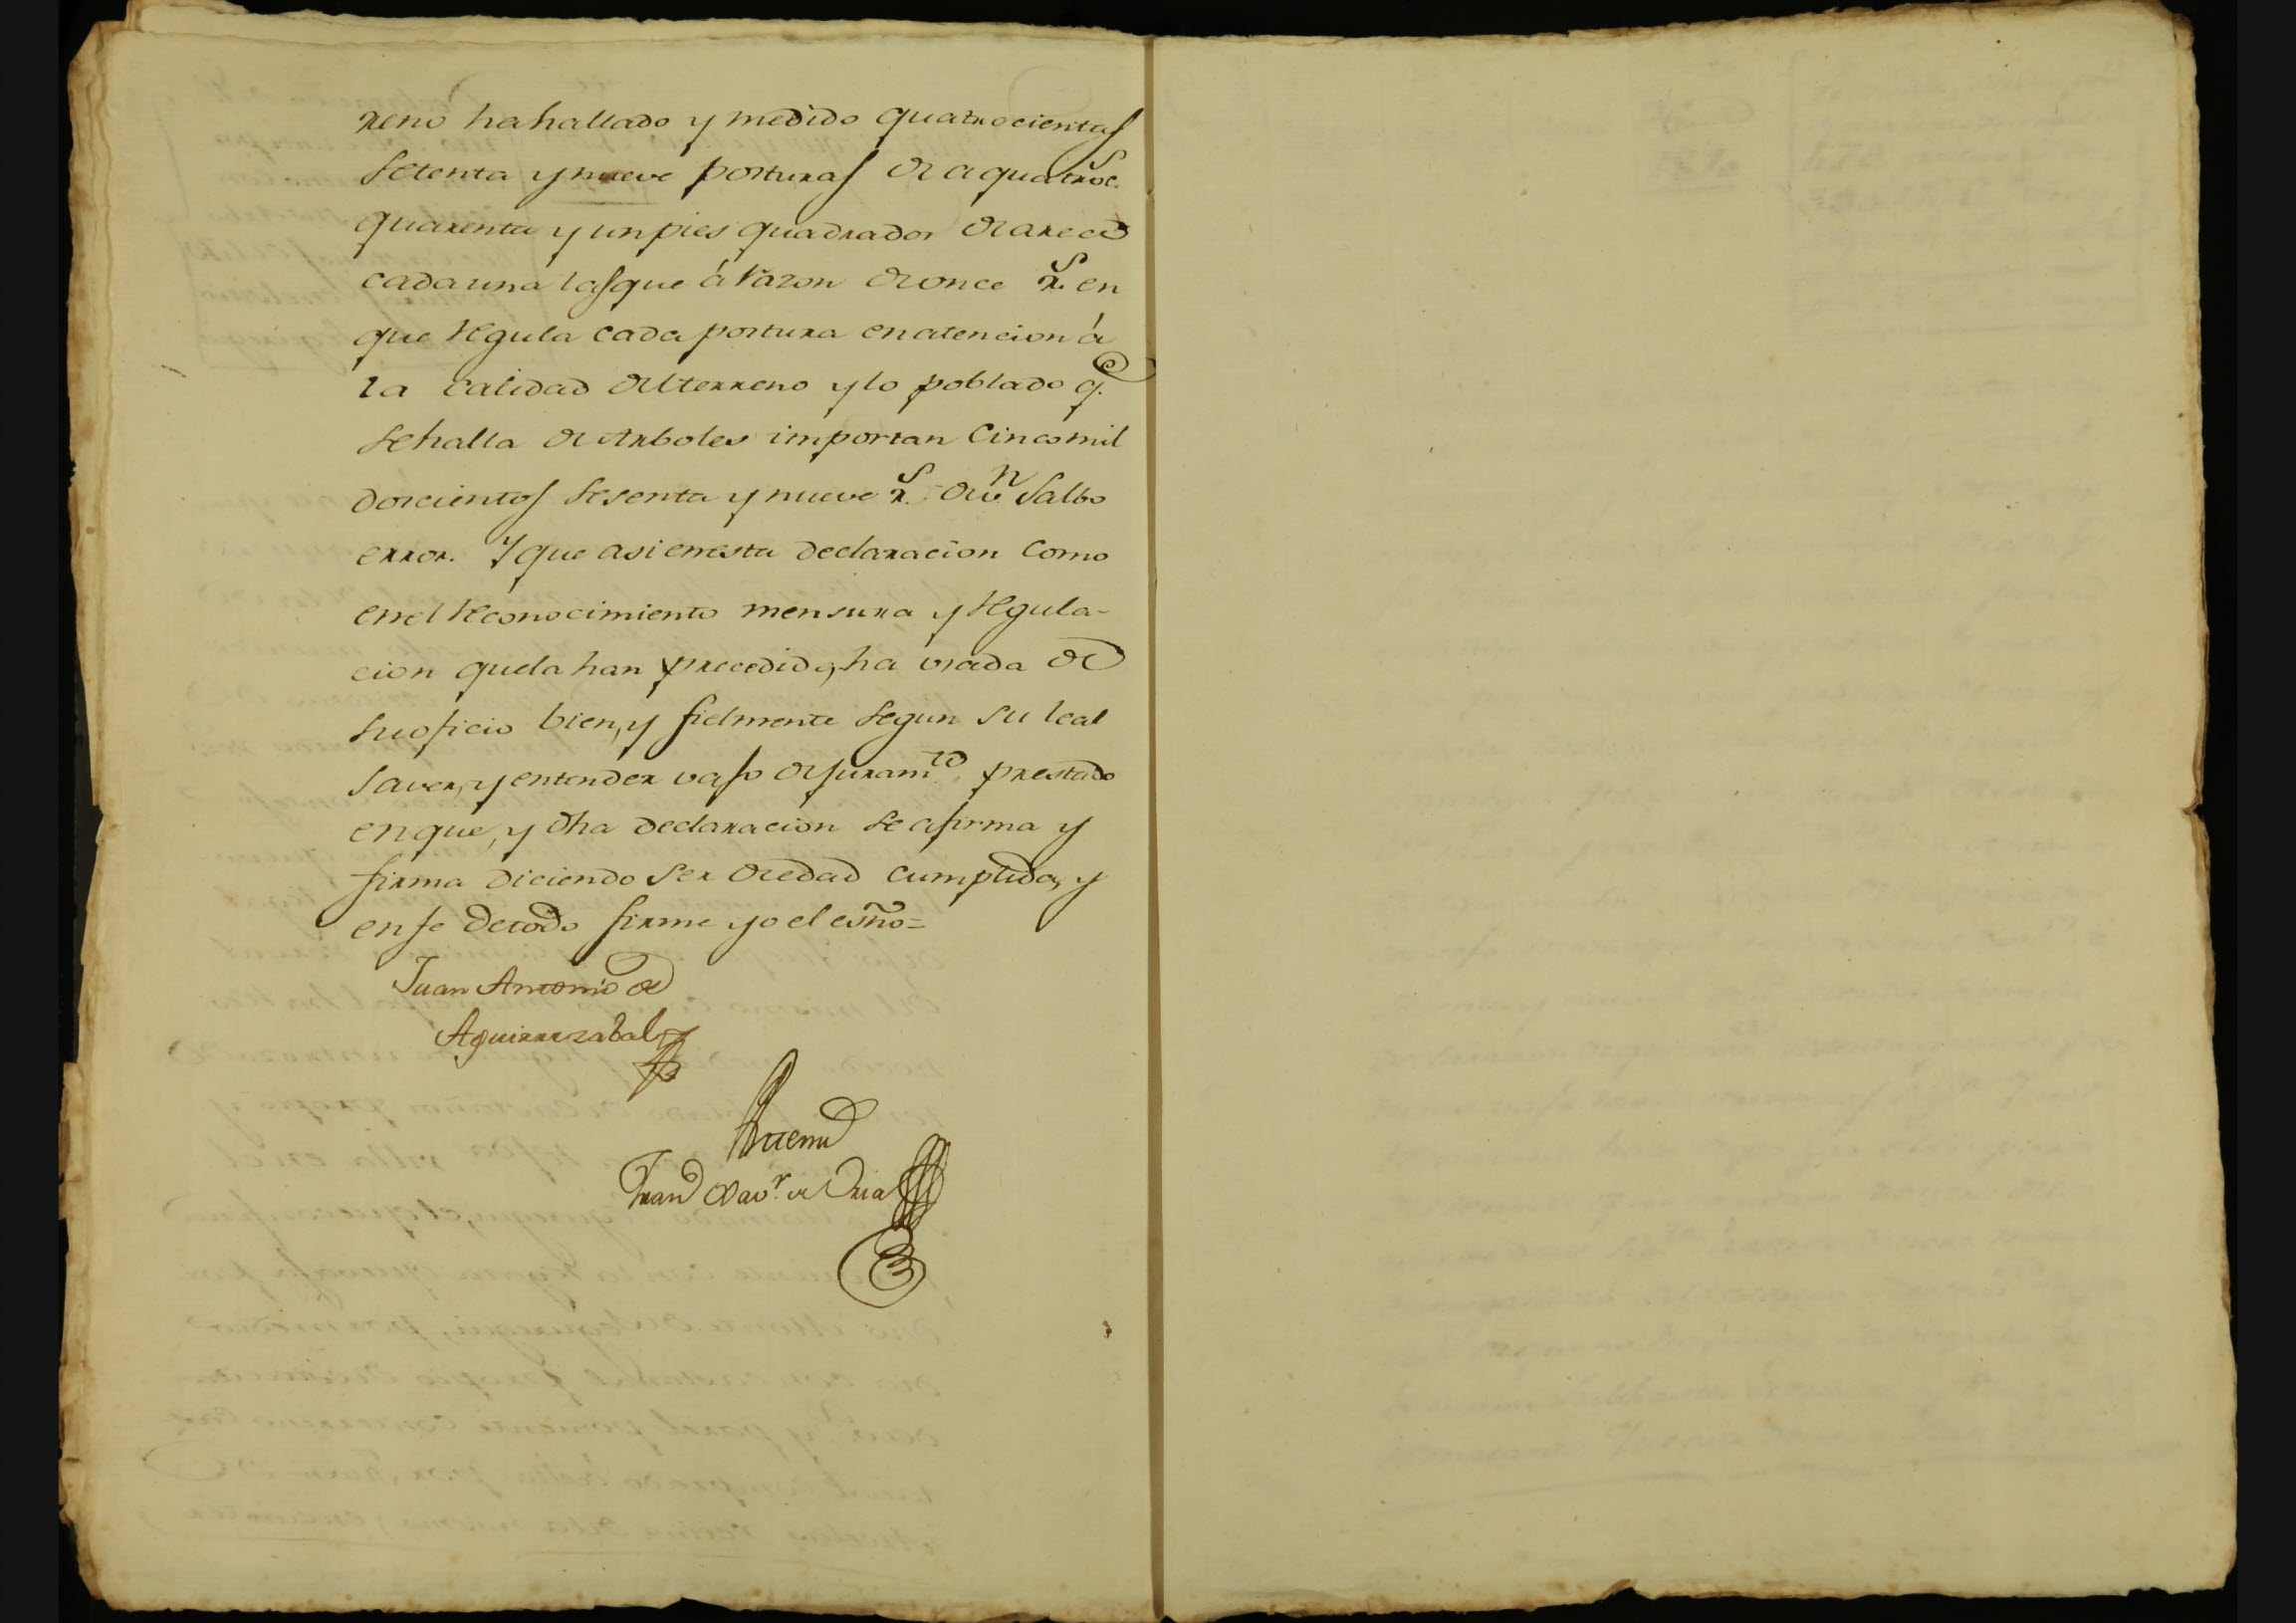 rreno ha hallado y medido quatrocientas
setenta y nueve posturas de a quatros.
quarenta y un pies quadrados de area
cada una las que á razon de once rs. en
que regula cada postura en atencion á
la calidad del terreno y lo poblado q.e
se halla de Arboles importan Cinco mil
doscientos sesenta y nueve rs. de vn. Salbo
error. Y que asi en esta declaracion como
en el reconocimiento mensura y regula-
cion que la han precedido, ha usada de
su oficio bien, y fielmente segun su leal
saver, y entender vaso de juram.to prestado
en que, y dha declaracion se afirma y
firma diciendo ser de edad cumplida, y
en fe de todo firme yo el esño=
Juan Antonio de
Aguirrezabal
Antemi
Fran.co Xav.r de